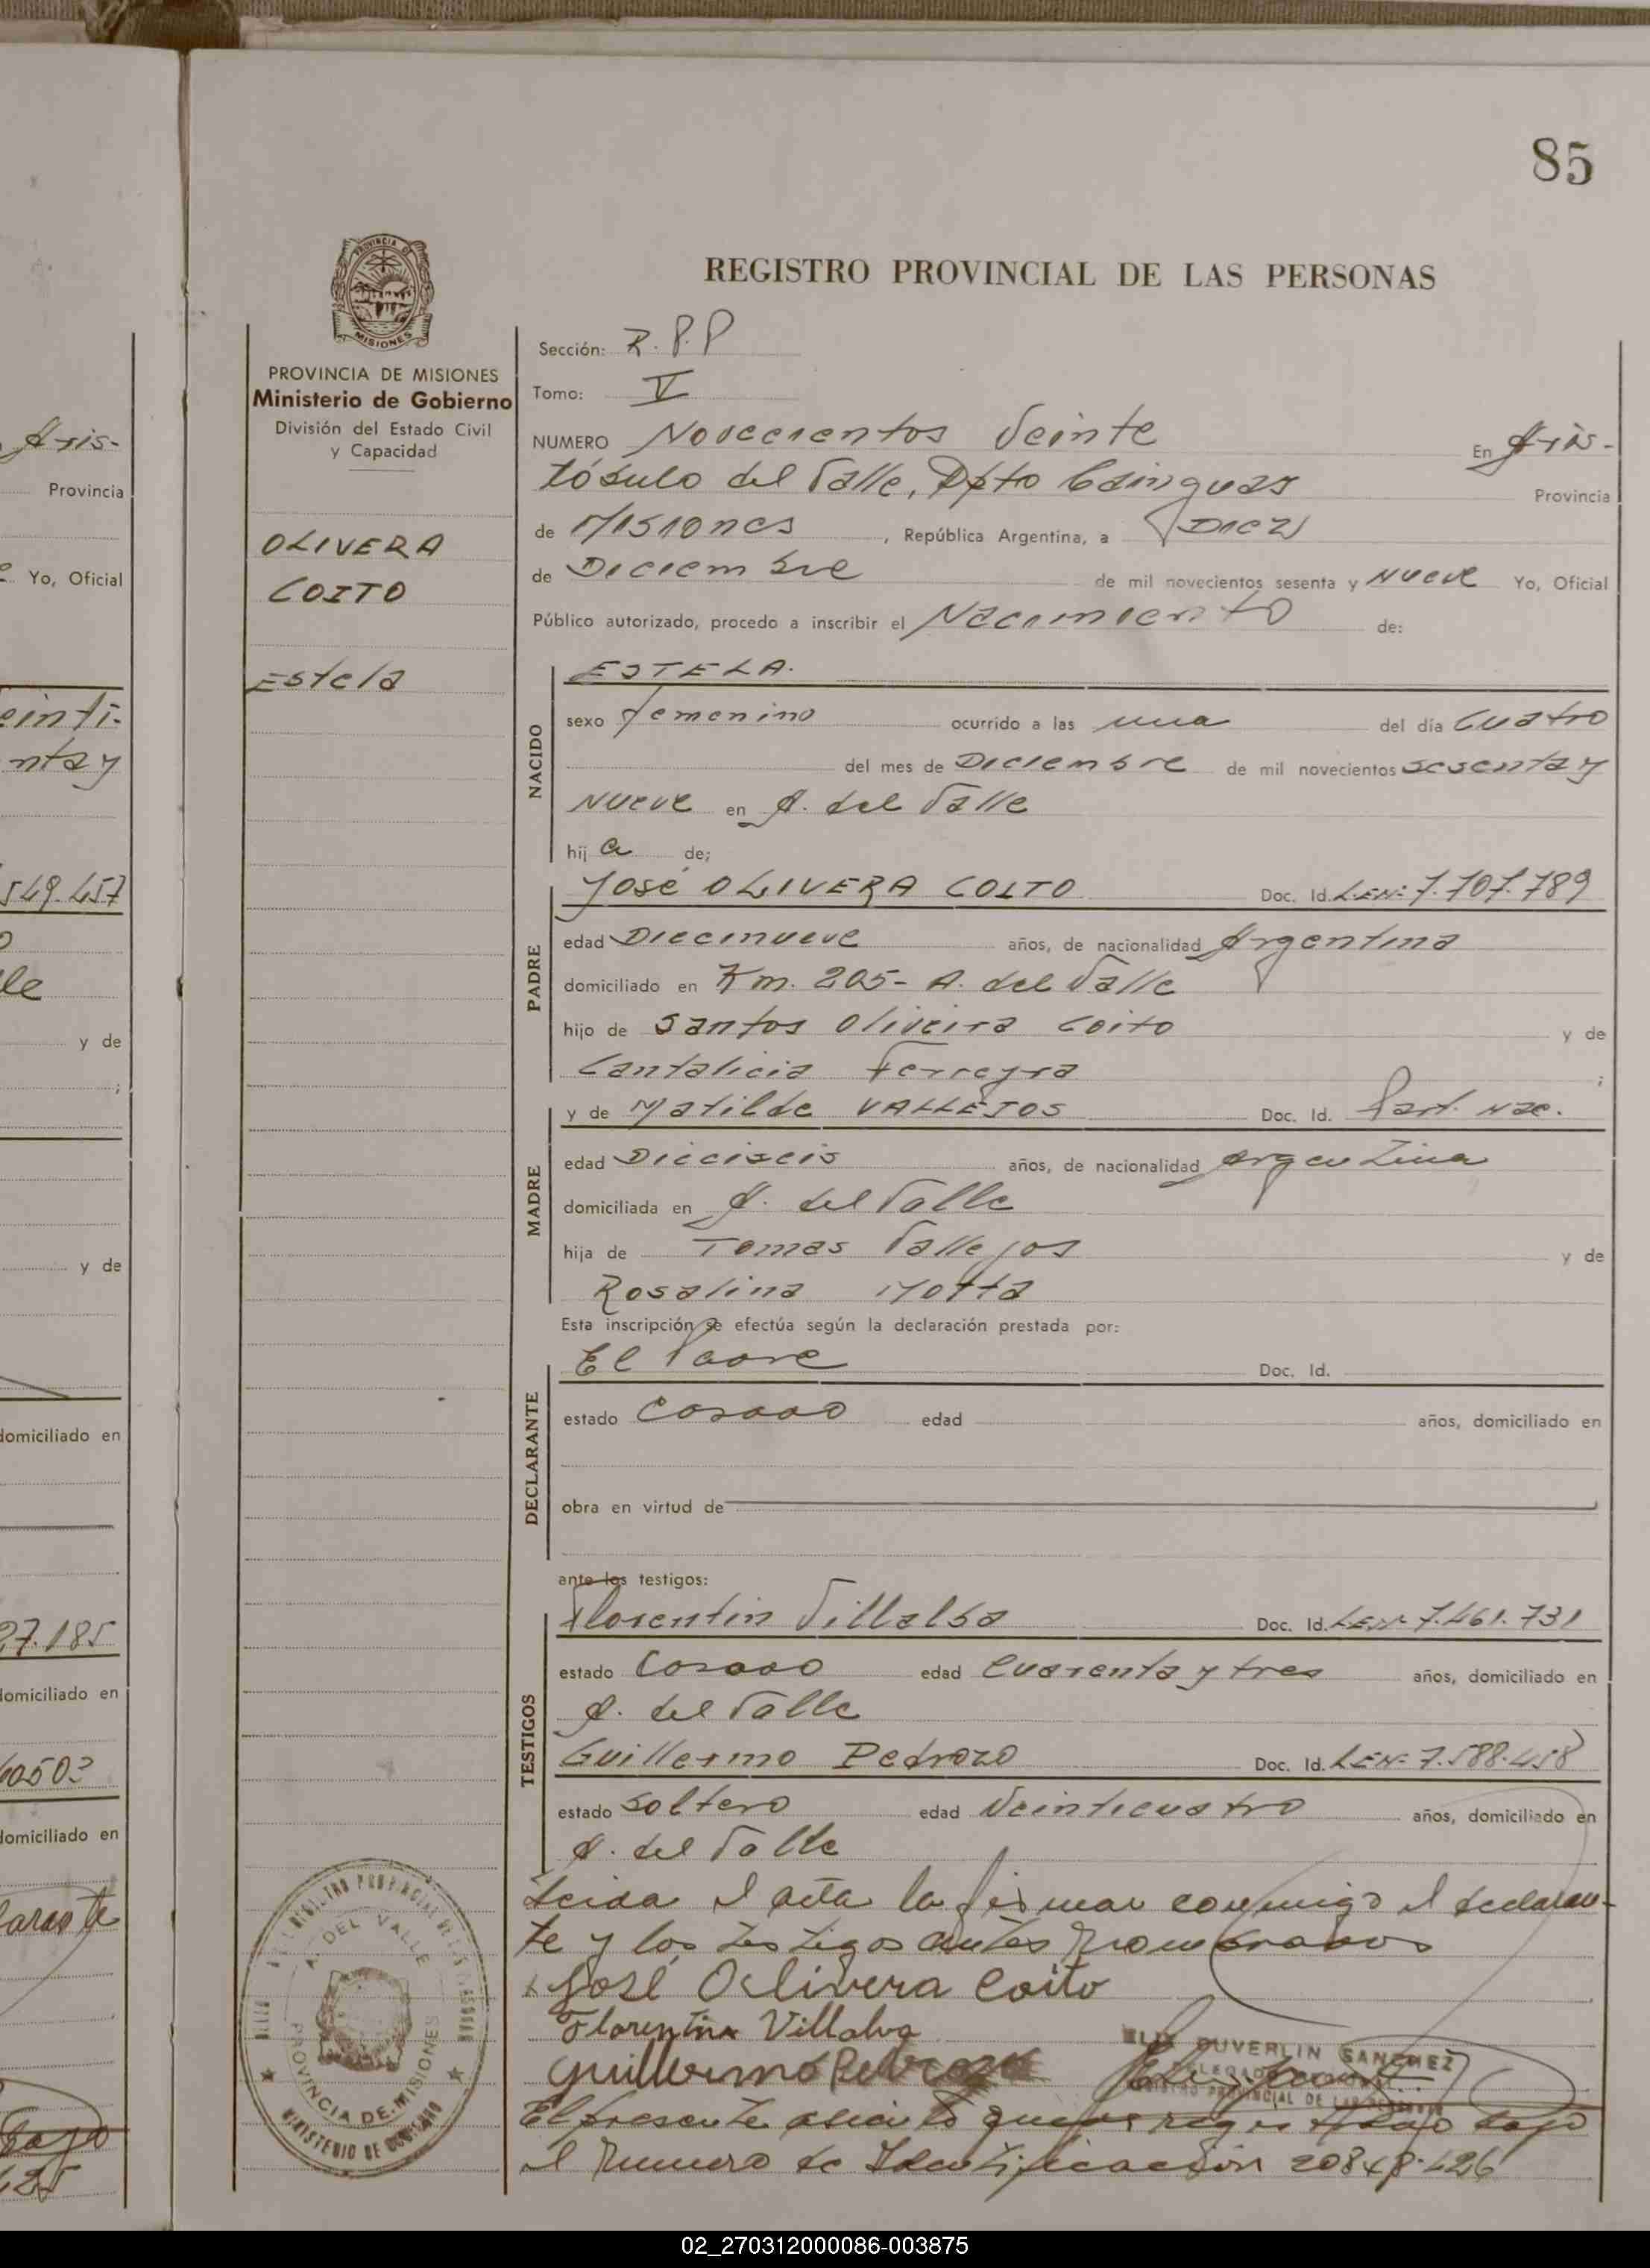 85
REGISTRO PROVINCIAL DE LAS PERSONAS
PROVINCIA DE MISIONES
PROVINCIA DE MISIONES
Ministerio de Gobierno
División del Estado Civil
y Capacidad
OLIVERA
COITO
Estela
Sección: R.P.P
Tomo: V
NUMERO Novecientos Veinte En Aris-
tóbulo del Valle, Dpto Cainguas Provincia
de Misiones, República Argentina, a Diez
de Diciembre de mil novecientos sesenta y Nueve Yo, Oficial
Público autorizado, procedo a inscribir el Nacimiento de:
NACIDO
ESTELA.
sexo femenino ocurrido a las una del día Cuatro
del mes de Diciembre de mil novecientos sesenta y
Nueve en A. del Valle
hij a de;
PADRE
José OLIVERA COITO Doc. Id. L.E.Nº 7.707.789
edad Diecinueve años, de nacionalidad Argentina
domiciliado en Km. 205- A. del Valle
hijo de Santos Oliveira Coito y de
Cantalicia Ferreyra ;
MADRE
y de Matilde VALLEJOS Doc. Id. Part. Nac.
edad Dieciseis años, de nacionalidad argentina
domiciliada en A. del Valle
hija de Tomas Vallejos y de
Rosalina Motta
Esta inscripción se efectúa según la declaración prestada por:
DECLARANTE
El Padre Doc. Id.
estado Casado edad años, domiciliado en
obra en virtud de
ante los testigos:
TESTIGOS
Florentin Villalba Doc. Id. L.E.Nº 7.461.731
estado Casado edad Cuarenta y tres años, domiciliado en
A. del Valle
Guillermo Pedrozo Doc. Id. L.E.Nº 7.588.458
estado Soltero edad Veinticuatro años, domiciliado en
A. del Valle
Leida el acta la firman conmigo el declaran-
te y los testigos antes nombrados
José Oclivera Coito
Florentin Villalva
Guillermo Pedrozo
DUVERLIN SANCHEZ
REGISTRO PROVINCIAL DE LAS PERSONAS
El presente asiento queda registrado bajo
el Numero de Identificación 20848.426
REGISTRO PROVINCIAL DE LAS PERSONAS
A. DEL VALLE
PROVINCIA DE MISIONES
MINISTERIO DE GOBIERNO
Aris-
Provincia
Yo, Oficial
einti-
nta y
549.457
le
y de
;
y de
domiciliado en
27.185
domiciliado en
domiciliado en
larante
bajo
425
02_270312000086-003875